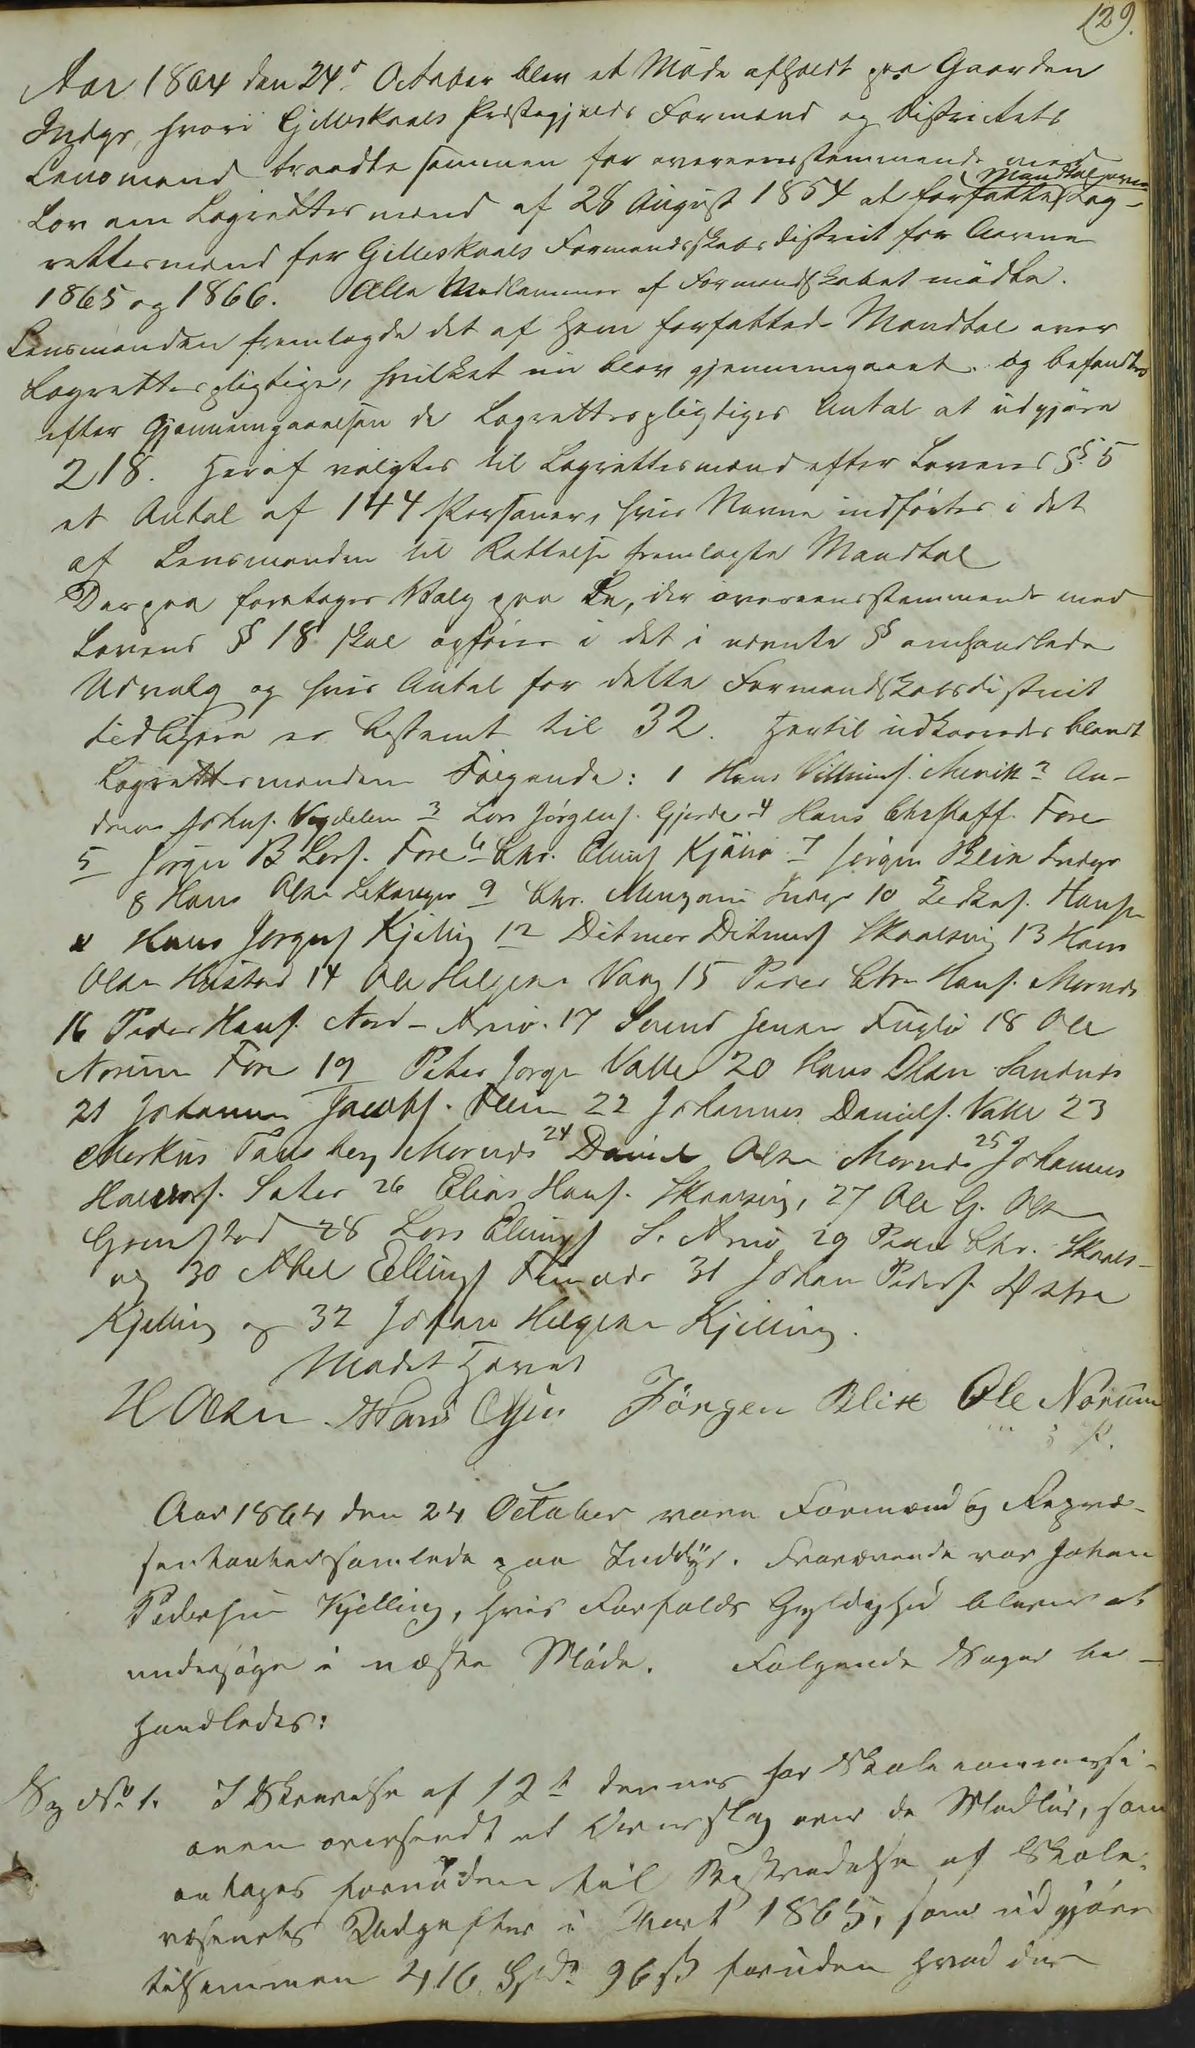 129.
Aar 1864 den 24de October blev et Møde afholdt paa Gaarden
Indyr, hvori Gilleskaals Præstegjelds Formænd og Districtets
Lensmand traadte sammen for overeensstemmende med
Lov om Lagrettesmænd af 28 August 1854 at forfatte Mandtal over Lag-
rettesmænd for Gilleskaals Formandskabsdistrict for Aarene
1865 og 1866. Alle Medlemmer af Formandskabet mødte.
Lensmanden fremlagde det af ham forfattede Mandtal over
Lagrettespligtige, hvilket nu blev gjennemgaaet og befandtes
efter Gjennemgaaelsen de Lagrettespligtiges Antal at udgjøre
218. Heraf valgtes til Lagrettesmænd efter Lovens § 5
et Antal af 144 Personer, hvis Navne indførtes i det
af Lensmanden til Rettelse fremlagte Mandtal
Derpaa foretoges Valg paa De, der overeensstemmende med
Lovens § 18 skal opføres i det i nævnte § omhandlede
Udvalg og hvis Antal for dette Formandskabsdistrict
tidligere er bestemt til 32. Hertil udkaaredes blandt
Lagrettesmændene Følgende: 1 Hans Villums. Mevik 2 An-
dreas Johns. Vegdelen 3 Lars Jørgens. Gjerde 4 Hans Christoff. Fore
5 Jørgen B Lars. Fore 6 Chr. Elings Kjørø 7 Jørgen Blix Indyr
8 Hans Olsen 9 Chr. Indyr 10 Hansen
11 Hans Jørgens Kjelling 12 Ditmer Ditmers Skaalsvig 13 Hans
Olsen Hustad 14 Ole Helgesen Vaag 15 Peder Chr. Hans. Mornæs
16 Peder Hans. Nord-Arnø. 17 Svend Jensen Fuglø 18 Ole
Norum Fore 19 Peter Jørgen Valle 20 Hans Olsen Sandnæs
21 Johannes Jacobs. 22 Johannes Daniels. Valle 23
Markus Mornæs 24 Daniel Olsen Mornæs 25 Johannes
Halvors. Sæter 26 Elias Hans. Skaalsvig, 27 Ole G. Olsen
Grimstad 28 Lars Elings S. Arnø 29 Peder Chr. Skaals-
vig 30 Abel Ellings 31 Johan Peders. Østre
Kjelling og 32 Johan Helgesen Kjelling.
Mødet hævet
H Olsen Hans Jørgen Blix Ole Norum
Aar 1864 den 24 October vare Formænd og Repræ-
sentanter samlede paa Inddyr. Fraværende var Johan
Pedersen Kjelling, hvis Forfalds Gyldighed bliver at
undersøge i næste Møde. Følgende Sager be-
handledes:
Sag No 1. I Skrivelse af 12te dennes har Skolecommissi-
onen oversendt et Overslag over de Midler, som
antages fornødne til Bestridelse af Skole-
væsenets Udgifter i Aaret 1865, som udgjøre
tilsammen 416 Spd. 96 ß foruden hvad der